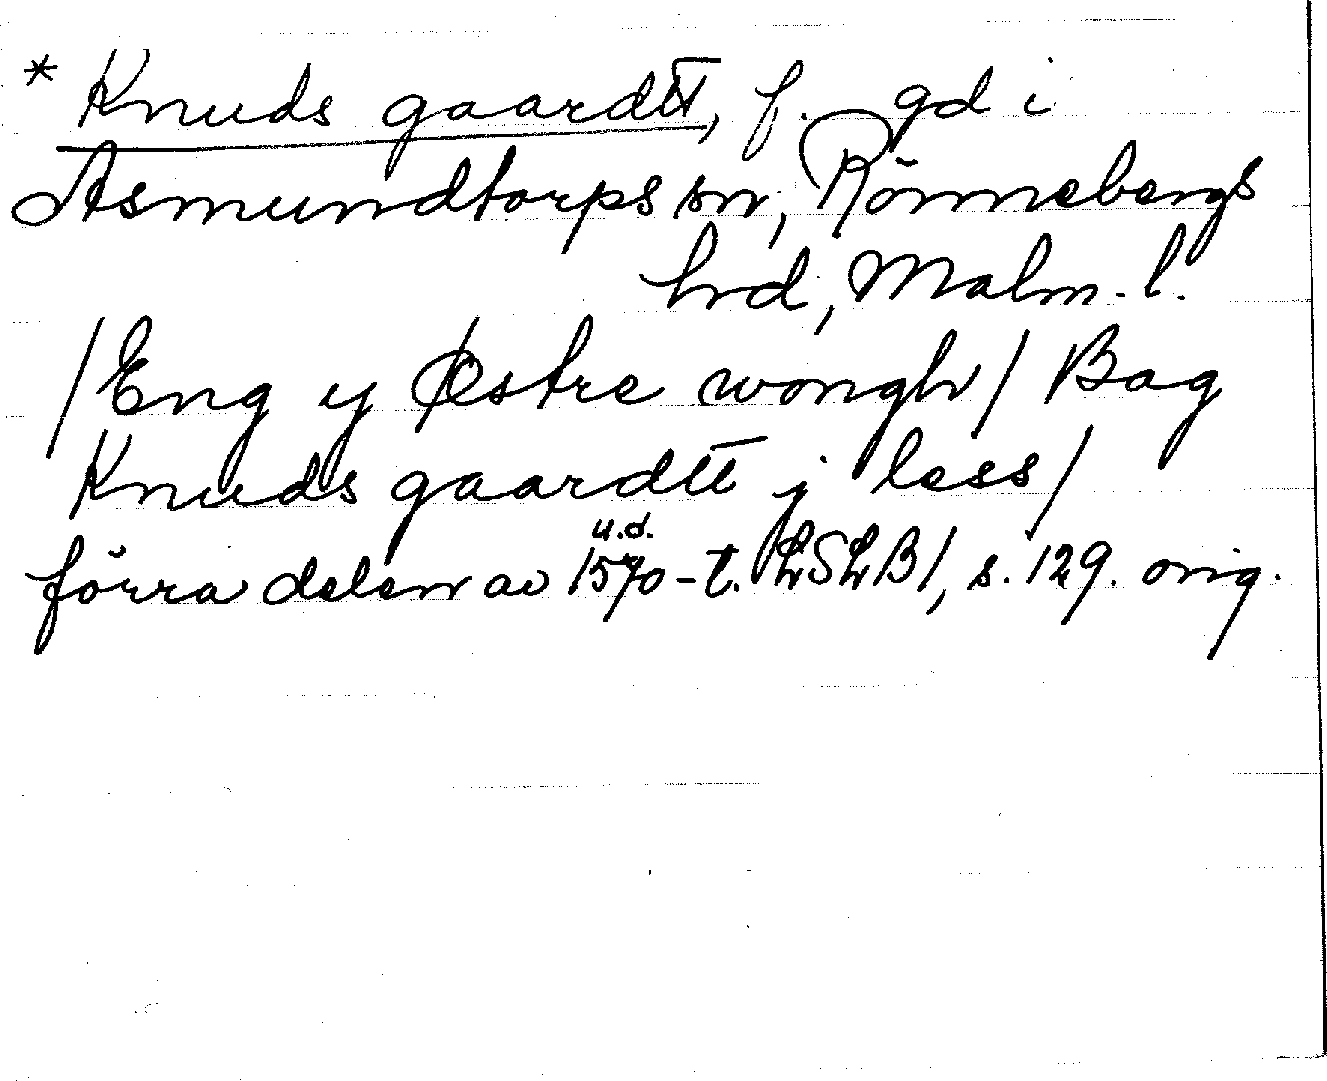 * Knuds gaardtt, f. gd i
Asmundtorps sn, Rönnebergs
hrd, Malm. l.
/Eng y Østre wongh/ Bag
Knuds gaardtt j less/
u.d.
förra delen av 1570-t. LSLB1, s. 129. orig.